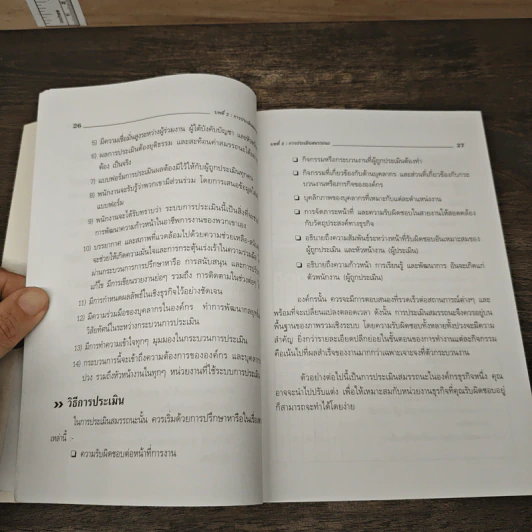 26
บทที่ 2 : การประเมิน
5) มีความเชื่อมั่นสูงระหว่างผู้ร่วมงาน ผู้ใต้บังคับบัญชา
6) ผลการประเมินต้องยุติธรรม และสะท้อนค่าสมรรถนะ
ต้อง เป็นจริง
7) แบบฟอร์มการประเมินผลต้องมีไว้ให้กับผู้ถูกประเมินทุกคน
8) พนักงานจะรับรู้ว่าพวกเขามีส่วนร่วม โดยการเสนอข้อมูล
แบบฟอร์ม
9) พนักงานจะได้รับทราบว่า ระบบการประเมินนี้เป็นสิ่งที่
การพัฒนาความก้าวหน้าในอาชีพการงานของพวกเขาเอง
10) บรรยากาศ และสภาพที่แวดล้อมไปด้วยความช่วยเหลือ
จะช่วยให้เกิดความมั่นใจและการกระตุ้นเร่งเร้าในความร่วมมือ
ผ่านกระบวนการการปรึกษาหารือ การสนับสนุน และการ
แก้ไข มีการเขียนรายงานย่อๆ รวมถึง การติดตามในช่วงต่อๆ
11) มีการกำหนดผลลัพธ์ในเชิงธุรกิจไว้อย่างชัดเจน
12) มีความร่วมมือของบุคลากรในองค์กร ทำการพัฒนากลยุทธ์
วิสัยทัศน์ในระหว่างกระบวนการประเมิน
13) มีการทำความเข้าใจทุกๆ มุมมองในกระบวนการประเมิน
14) กระบวนการนี้จะเข้าถึงความต้องการขององค์กร และบุคลากร
ปวง รวมถึงหัวหน้างานในทุกๆ หน่วยงานที่ใช้ระบบการประเมิน
วิธีการประเมิน
ในการประเมินสมรรถนะนั้น ควรเริ่มด้วยการปรึกษาหารือในเรื่อง
เหล่านี้ -
❑ ความรับผิดชอบต่อหน้าที่การงาน
บทที่ 2 : การประเมินสมรรถนะ
27
❑ กิจกรรมหรือกระบวนงานที่ผู้ถูกประเมินต้องทำ
❑ กิจกรรมที่เกี่ยวข้องกับด้านบุคลากร และส่วนที่เกี่ยวข้องกับกระ
บวนงานหรือภารกิจขององค์กร
❑ บุคลิกภาพของบุคลากรที่เหมาะกับแต่ละตำแหน่งงาน
❑ การจัดภาระหน้าที่ และความรับผิดชอบในสายงานให้สอดคล้อง
กับวัตถุประสงค์ทางธุรกิจ
❑ อธิบายถึงความสัมพันธ์ระหว่างหน้าที่รับผิดชอบอันเหมาะสมของ
ผู้ถูกประเมิน และหัวหน้างาน (ผู้ประเมิน)
❑ อธิบายถึงความก้าวหน้า การเรียนรู้ และพัฒนาการ อันจะเกิดแก่
ตัวพนักงาน (ผู้ถูกประเมิน)
องค์กรนั้น ควรจะมีการตอบสนองที่รวดเร็วต่อสถานการณ์ต่างๆ และ
พร้อมที่จะเปลี่ยนแปลงตลอดเวลา ดังนั้น การประเมินสมรรถนะจึงควรอยู่บน
พื้นฐานของภาพรวมเชิงระบบ โดยความรับผิดชอบทั้งหลายทั้งปวงจะมีความ
สำคัญ ยิ่งกว่ารายละเอียดปลีกย่อยในขั้นตอนของการทำงานแต่ละกิจกรรม
คือเน้นไปที่ผลสำเร็จของงานมากกว่าเฉพาะเจาะจงที่ตัวกระบวนงาน
ตัวอย่างต่อไปนี้เป็นการประเมินสมรรถนะในองค์กรธุรกิจหนึ่ง คุณ
อาจจะนำไปปรับแต่ง เพื่อให้เหมาะสมกับหน่วยงานธุรกิจที่คุณรับผิดชอบอยู่
ก็สามารถจะทำได้โดยง่าย